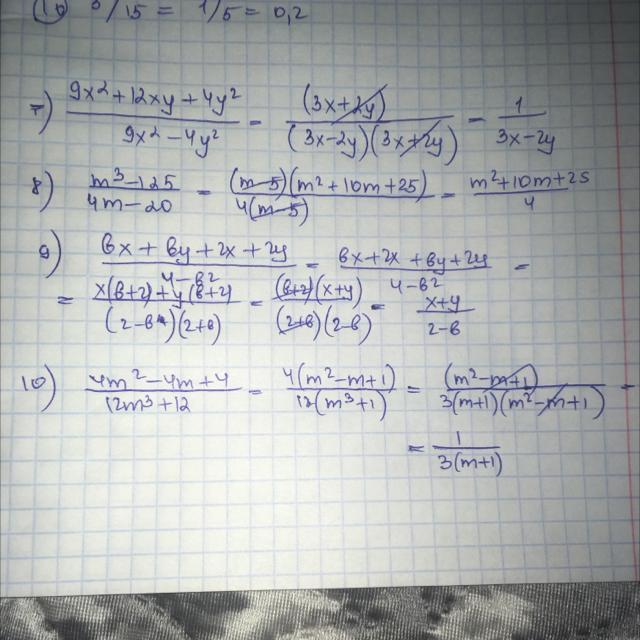 10 3/15 = 1/5 = 0,2
7) (9x² + 12xy + 4y²)/(9x² - 4y²) = (3x+2y)/((3x-2y)(3x+2y)) = 1/(3x-2y)
8) (m³-125)/(4m-20) = ((m-5)(m²+10m+25))/(4(m-5)) = (m²+10m+25)/4
9) (bx + by + 2x + 2y)/(4-b²) = (bx+2x + by+2y)/(4-b²) =
= (x(b+2)+y(b+2))/((2-b)(2+b)) = ((b+2)(x+y))/((2+b)(2-b)) = (x+y)/(2-b)
10) (4m²-4m+4)/(12m³+12) = (4(m²-m+1))/(12(m³+1)) = (m²-m+1)/(3(m+1)(m²-m+1)) =
= 1/(3(m+1))